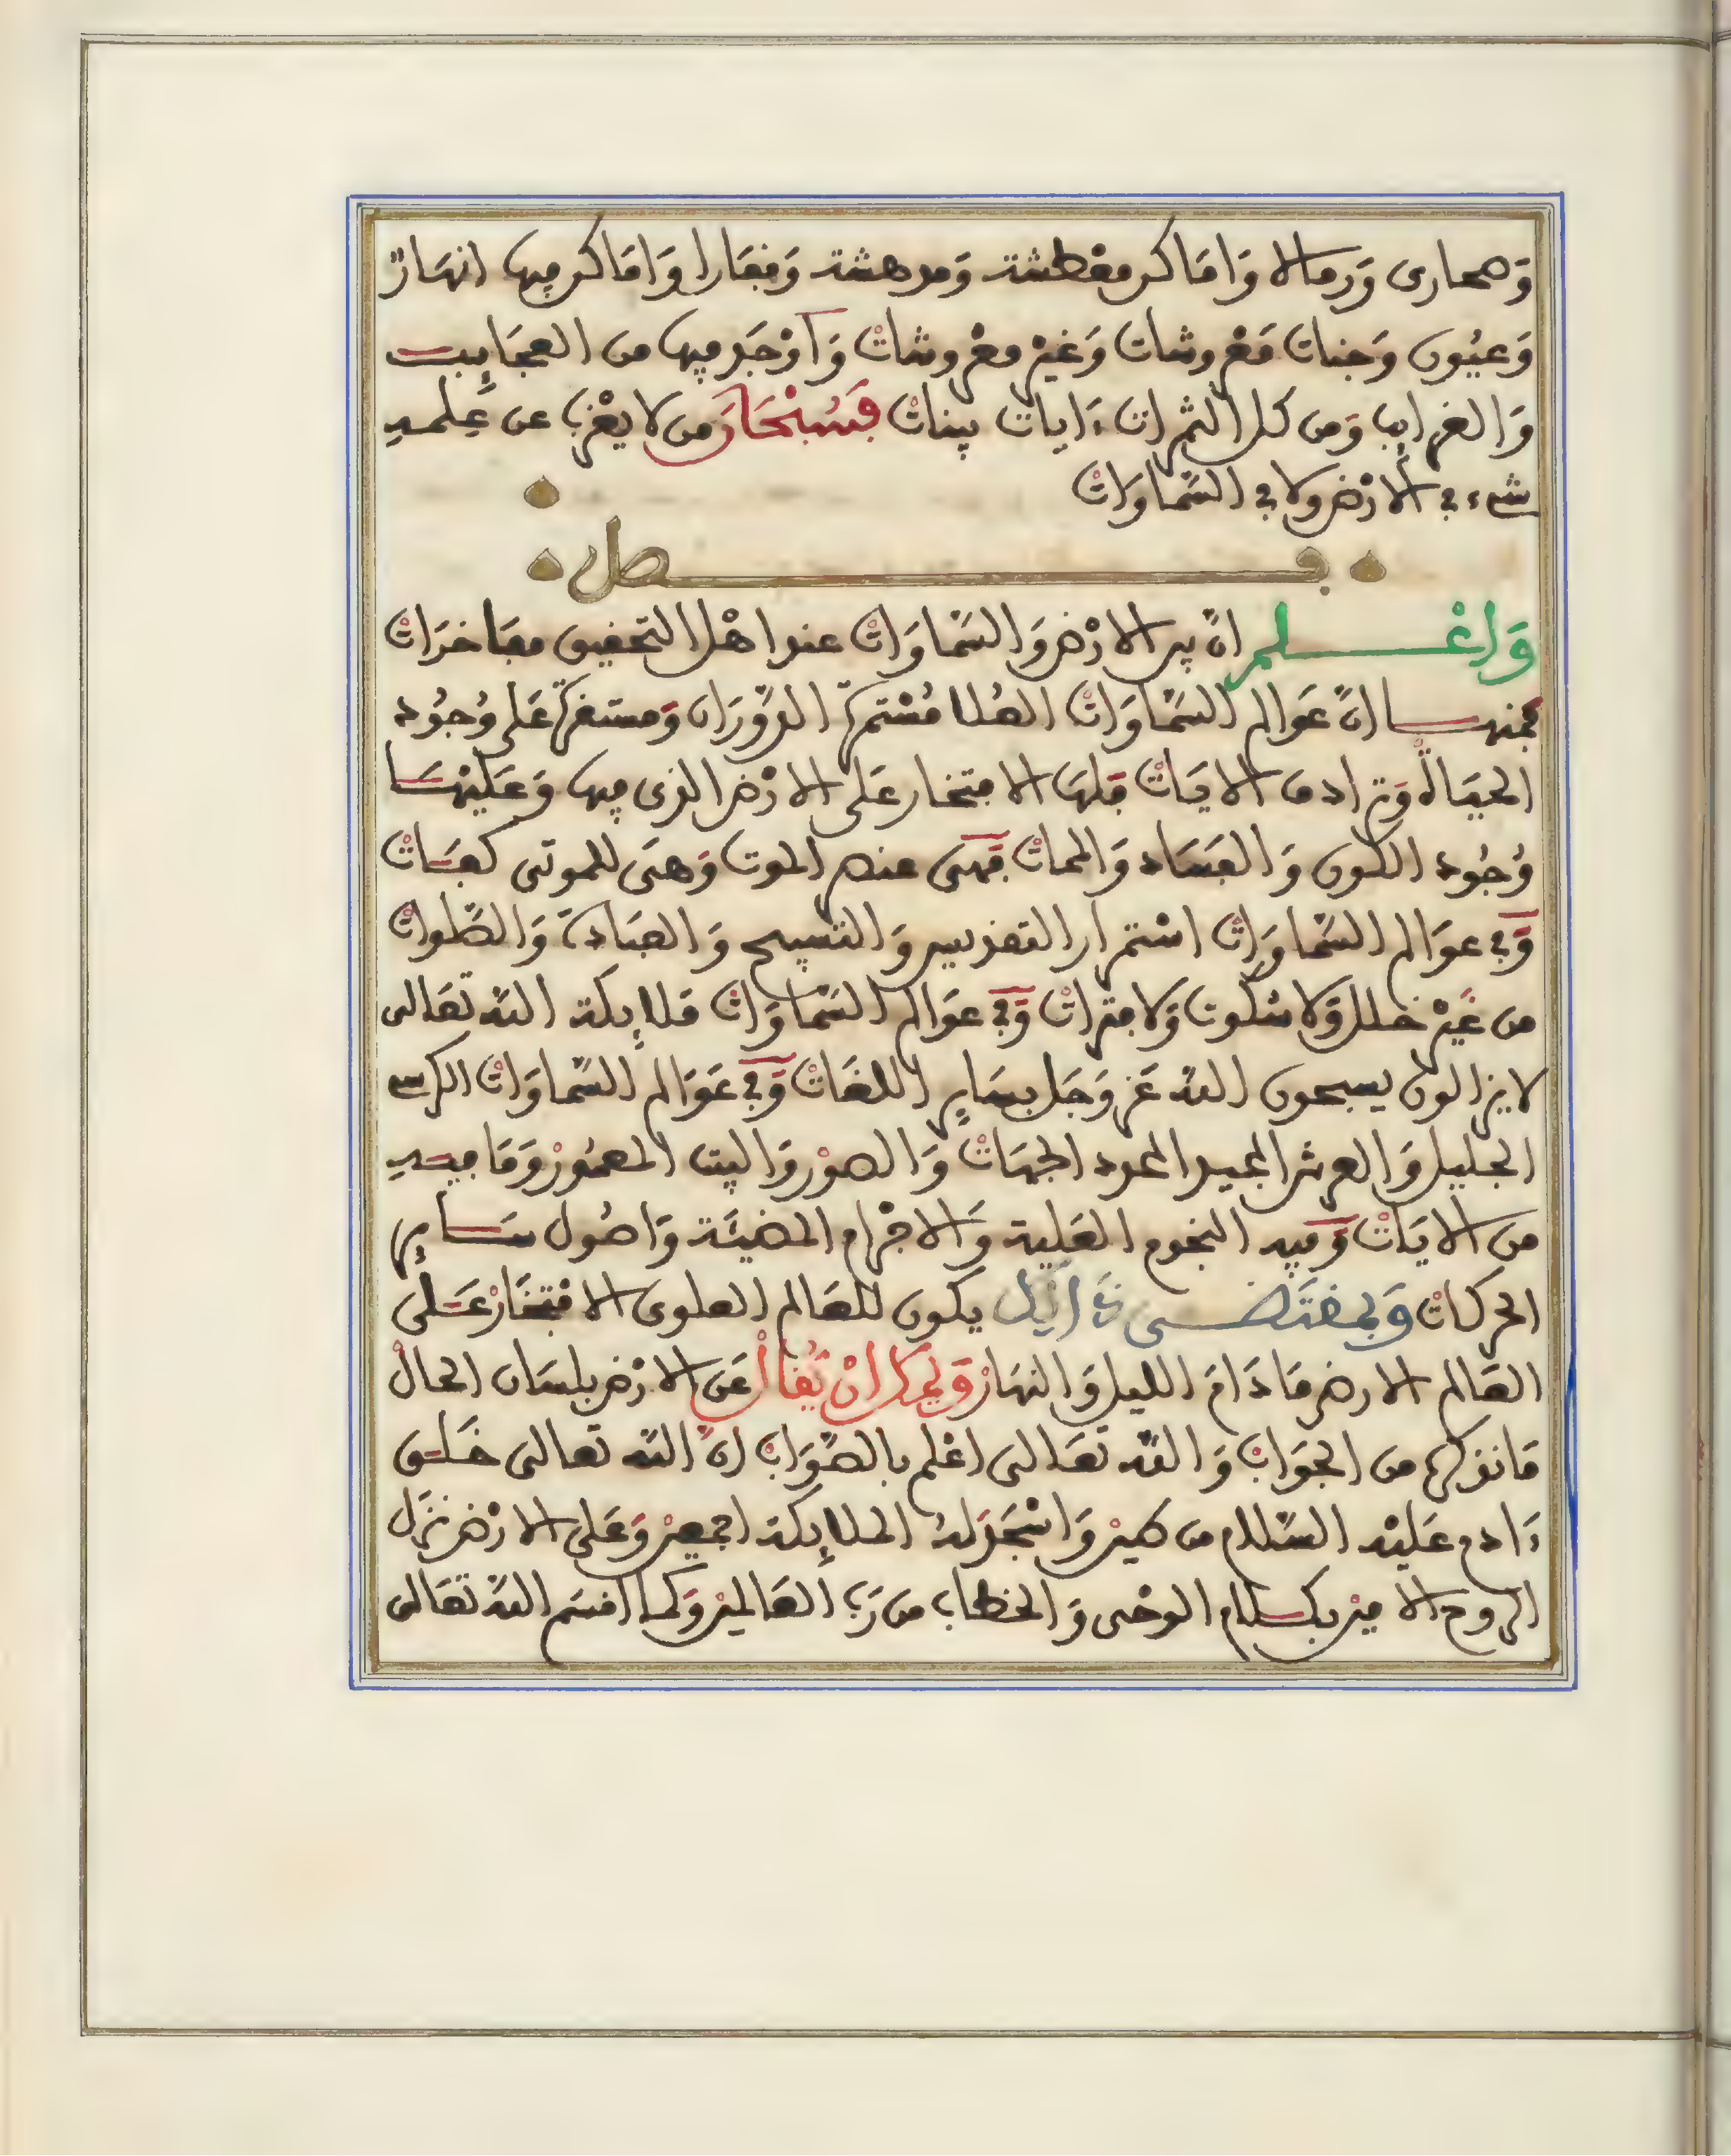 وَصحارى وَرمالا وَامَاكن معْطشة وَمدهشة وَفقارا وَامَاكن فيها انهارْ
وَعيُون وَجنات مَعْروشات وَغيْر معْروشاتْ وَاوْجَد فيها من العجَايِب
وَالغرايِب وَمن كل الثمرات ءَايات بينات فَسُبْحَانَ من لا يعْزب عن عِلمه
شىء في الارْض ولا في السَّماوَاتْ
فصل
وَاعْلم
انَّ بين الارْض وَالسَّماوَات عند اهْل التحقيق مفَاخرَاتْ
فمنها انَّ عَوَالم السَّمَاوَات العُلا مُسْتمرّة الدَّوَرَان وَمستقرّة عَلى وُجُود
الحيَاة وَترادف الايَات فلهَا الافتخار عَلى الارْض الذى فيها وَعَليْهَا
وُجُود الكون وَالفسَاد وَالممات فهىَ عنصر الموت وَهىَ للموتى كفَاتْ
وَفي عوَالم السَّماوَاتْ اسْتمرار التقديس وَالتسبيح وَالعبَادة وَالصَّلوات
من غَيْر خلل وَلا سُكوت وَلا فترات وَفي عوَالم السَّمَاوَات مَلايِكة الله تعَالى
لا يزالون يسبحون الله عَز وَجَل بسَايِر اللغَات وَفي عَوَالم السَّماوَاتْ الكرسى
الجليل وَالعرش المجيد المحدد الجهَات وَالصوْر وَالبيت المعمُوْر وَمَا فيه
من الايَاتْ وَفيه النجوم العَلية وَالاجْرام المضيئَة وَاصُول سَايِر
الحرَكاتْ وَبمقتَضى ذَالِكَ يكون للعَالم العلوى الافتخَارْ عَلى
العَالم الارض مَا دَامَ الليل وَالنهَارْ وَيمكن انْ يُقالْ عَن الارْض بلسَان الحالْ
مَا نذكره من الجوَابْ وَالله تعَالى اعْلم بالصَّوَابْ انَّ الله تعالى خلق
ءَادم عَليْه السَّلام من طين وَاسْجَدَ لهُ الملايِكة اجمعين وَعَلى الارْض نزَل
الروح الامين بكلام الوحْى وَالخطاب من رَبّ العَالمين وَكما اقسَم الله تعَالى